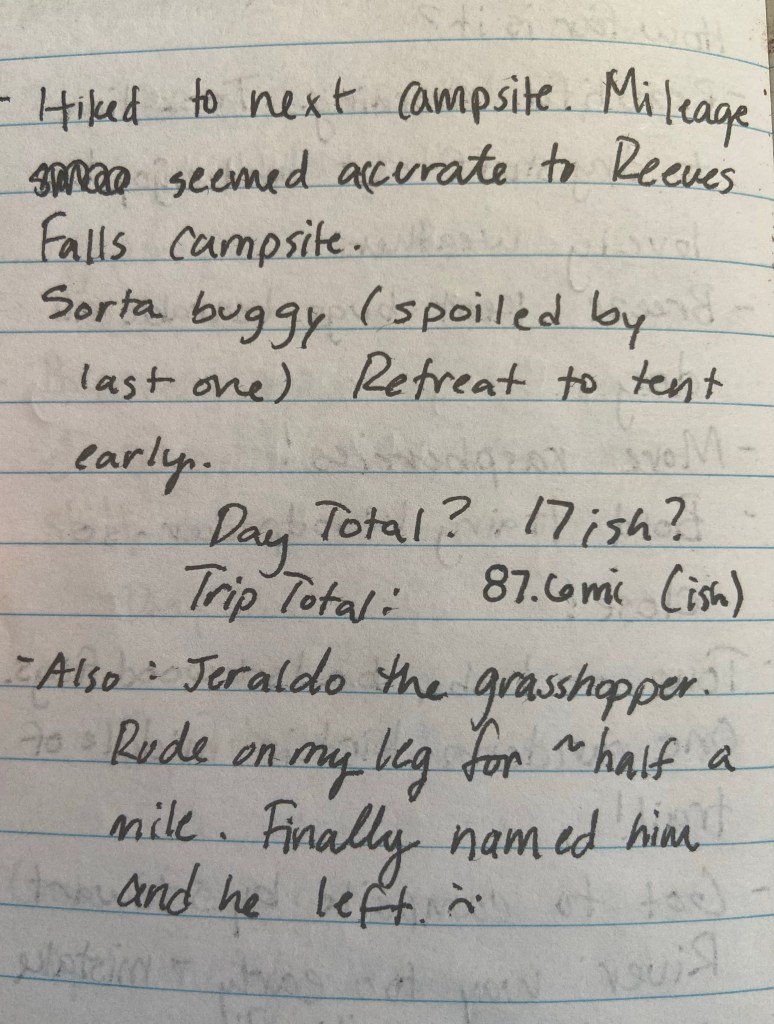 - Hiked to next campsite. Mileage
seemed accurate to Reeves
Falls campsite.
Sorta buggy (spoiled by
last one) Retreat to tent
early.
Day Total? 17ish?
Trip Total: 87.6mi (ish)
- Also: Jeraldo the grasshopper.
Rode on my leg for ~half a
mile. Finally named him
and he left. :(